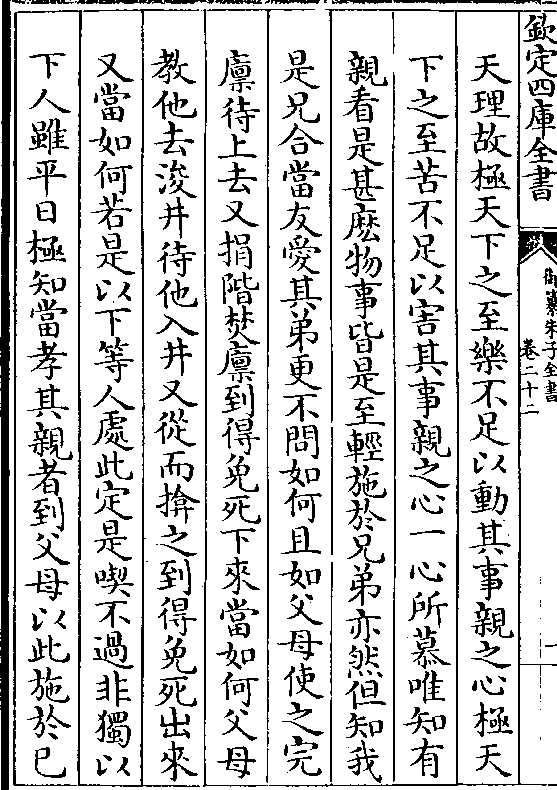 欽定四庫全書
御纂朱子全書
卷二十二
一
天理故極天下之至樂不足以動其事親之心極天
下之至苦不足以害其事親之心一心所慕唯知有
親看是甚麽物事皆是至輕施於兄弟亦然但知我
是兄合當友愛其弟更不問如何且如父母使之完
廪待上去又捐階焚廪到得免死下來當如何父母
教他去浚井待他入井又從而揜之到得免死出來
又當如何若是以下等人處此定是喫不過非獨以
下人雖平日極知當孝其親者到父母以此施於已